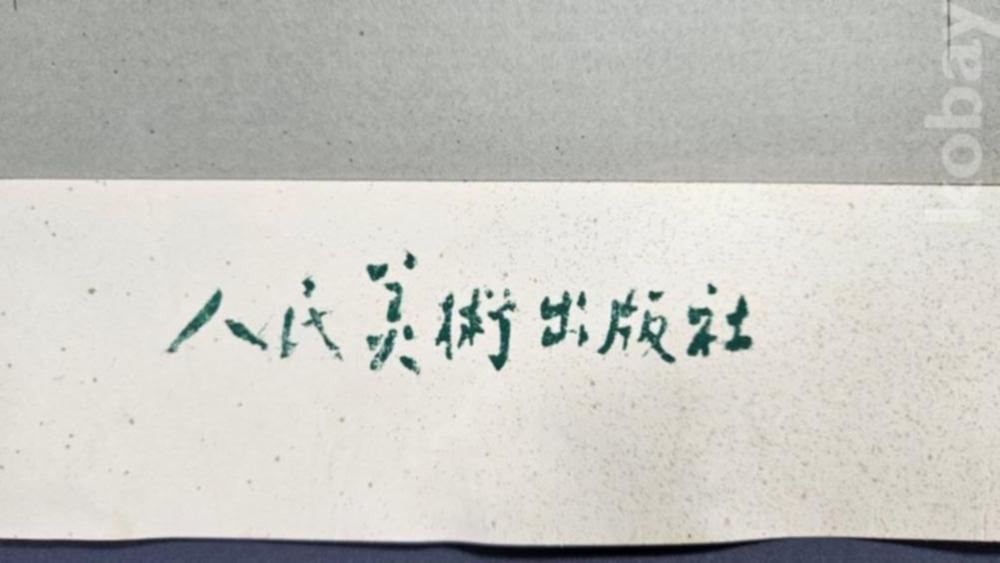 人民美術出版社
kobay